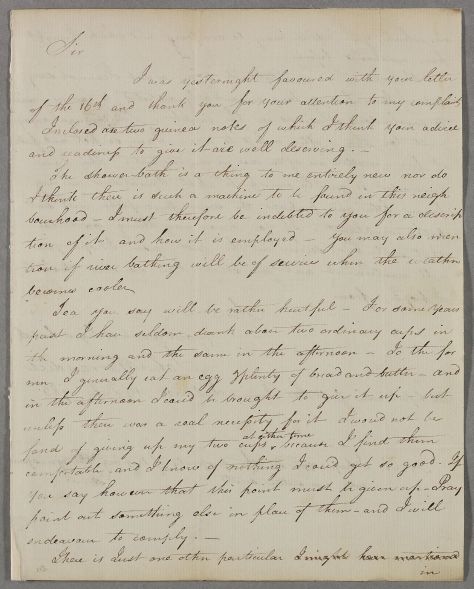 Sir
I was yesternight favoured with your letter
of the 16th and thank you for your attention to my complaint
Inclosed are two guinea notes of which I think your advice
and readiness to give it are well deserving. —
The shower bath is a thing to me entirely new nor do
I think there is such a machine to be found in this neigh
bourhood — I must therefore be indebted to you for a descrip
tion of it and how it is employed — you may also men
tion if river bathing will be of service when the weather
becomes cooler
Tea you say will be rather hurtful — For some years
past I have seldom drank above two ordinary cups in
the morning and the same in the afternoon — To the for
mer I generally eat an egg & plenty of bread and butter — and
in the afternoon I could be brought to give it up — but
unless there was a real necessity for it I would not be
fond of giving up my two cups at either time because I find them
comfortable and I know of nothing I could get so good. If
you say however that this point must be given up — Pray
point out something else in place of them — and I will
endeavour to comply. —
There is Just one other particular I might have mentioned
in